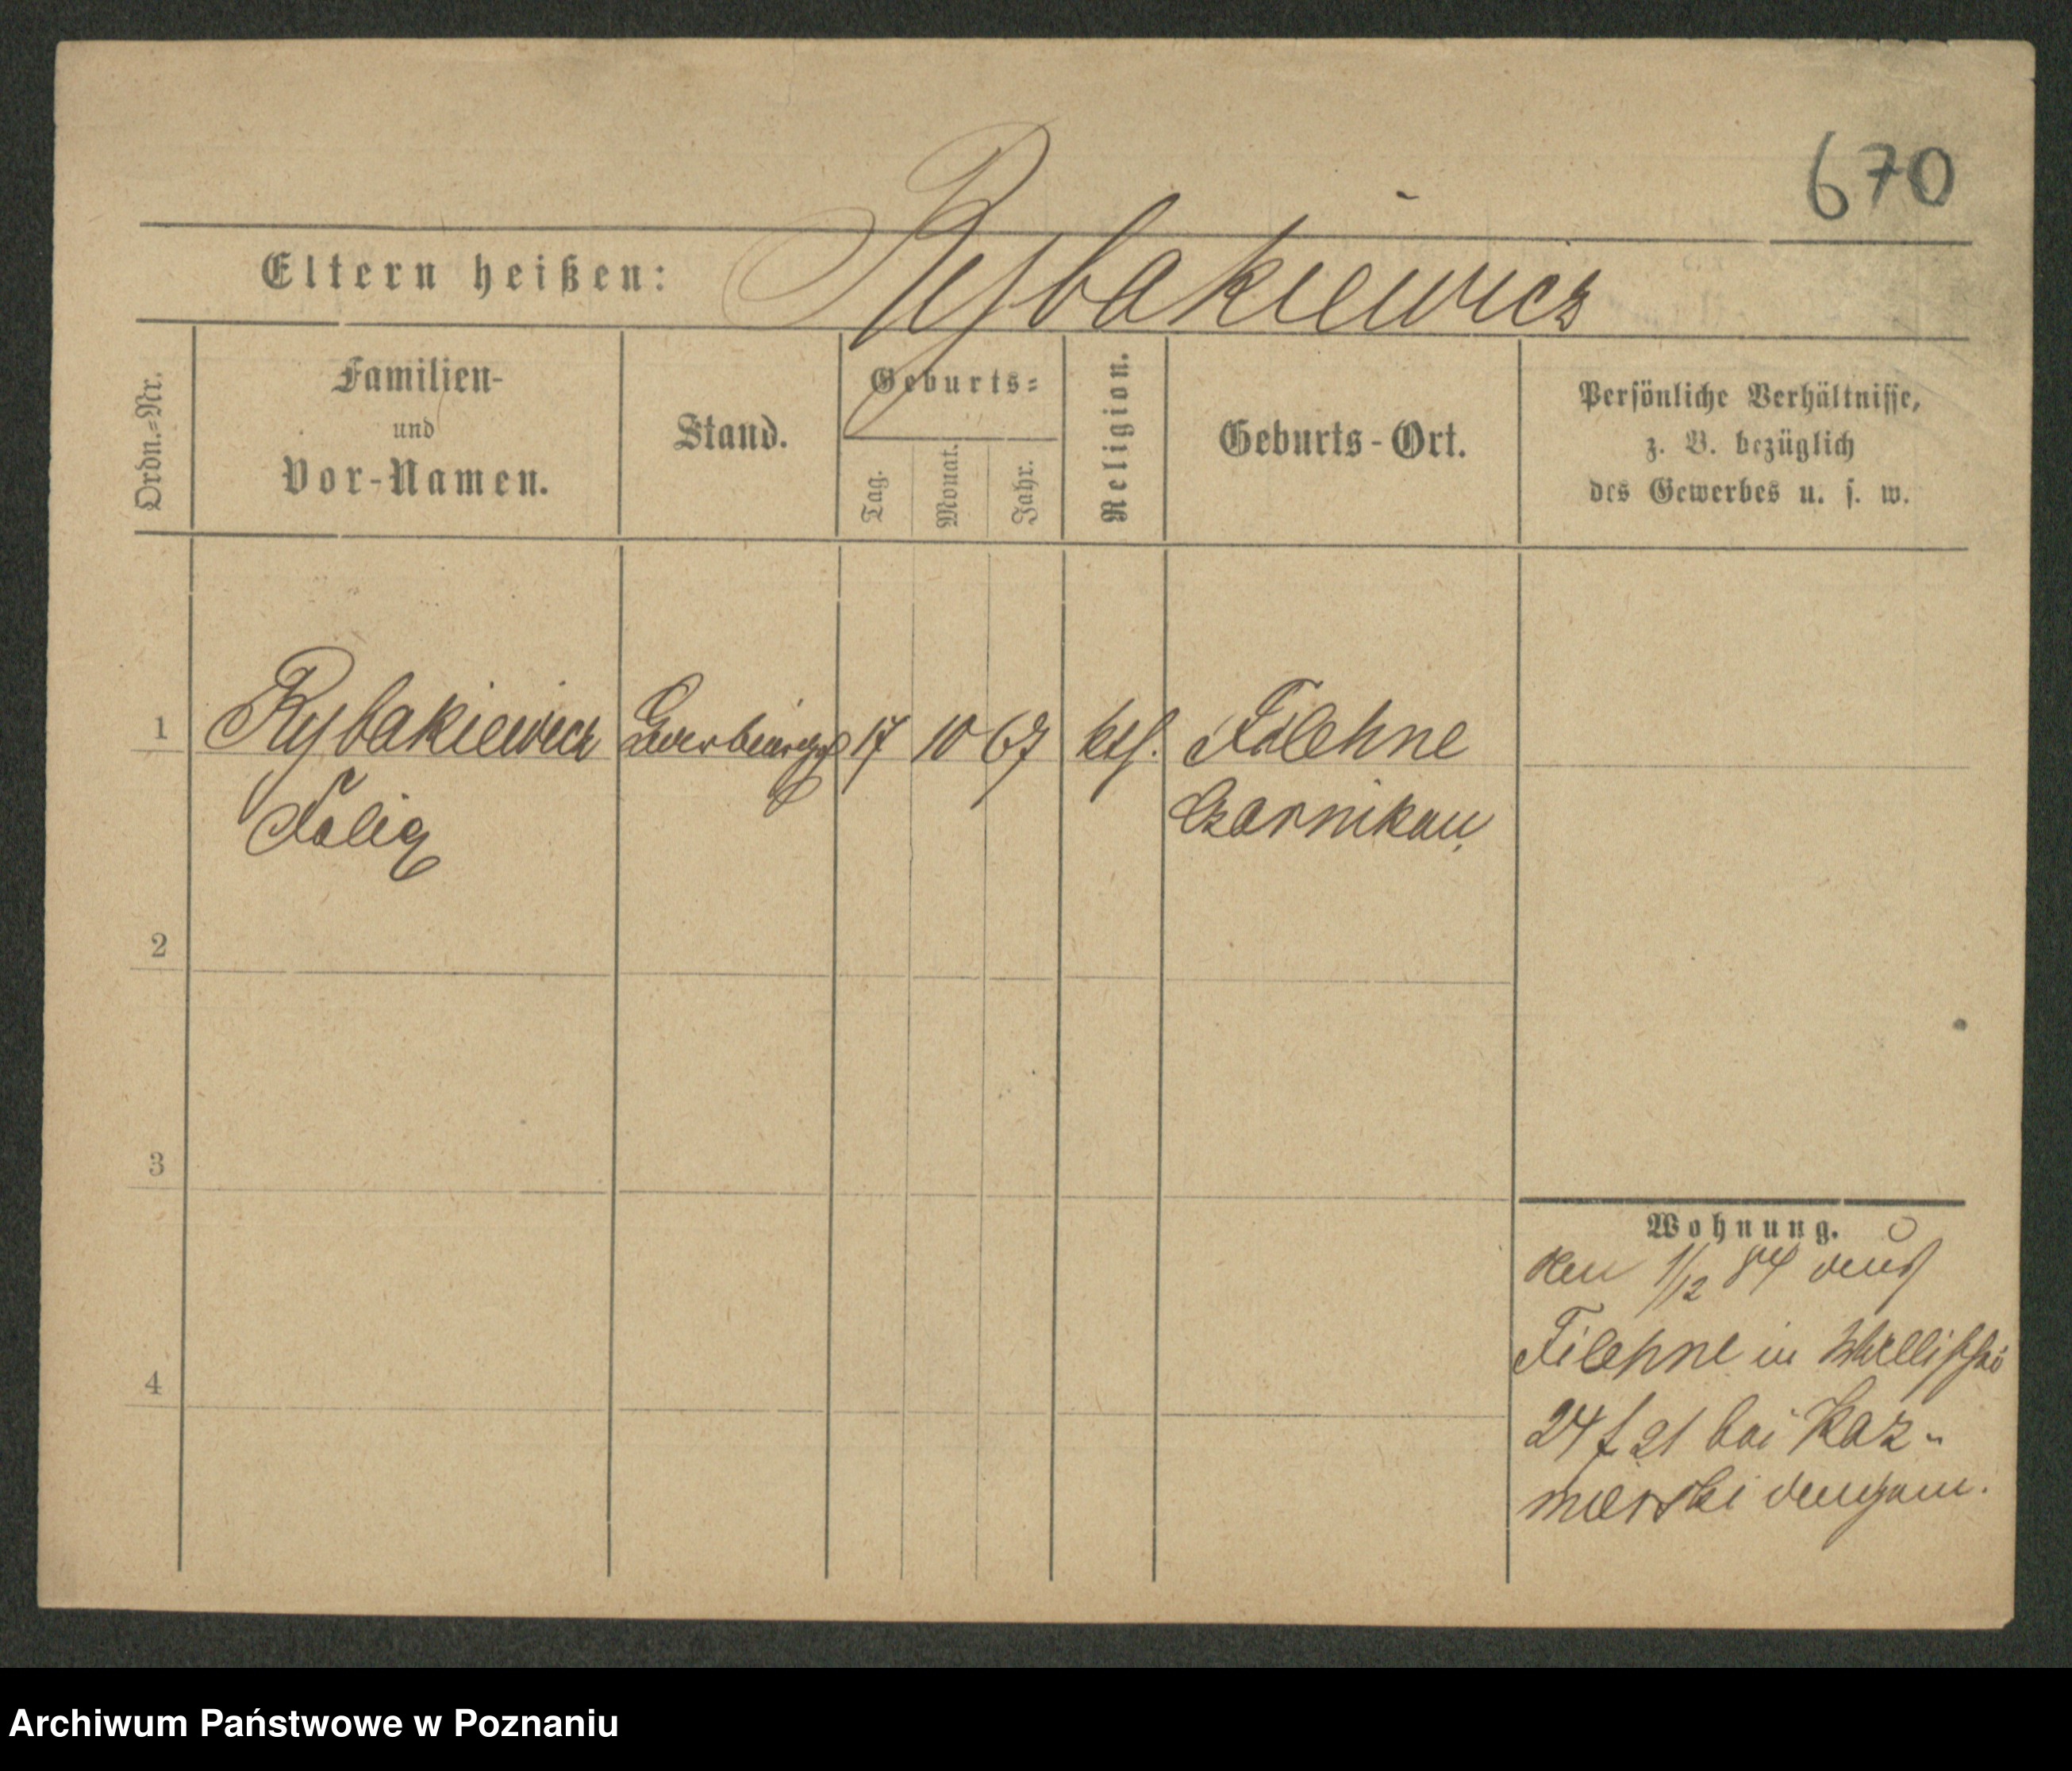 670
Eltern heißen: Rybakiewicz
Ordn.=Nr.
Familien-
und
Vor-Namen.
Stand.
Geburts=
Tag.
Monat.
Jahr.
Religion.
Geburts-Ort.
Persönliche Verhältnisse,
z. B. bezüglich
des Gewerbes u. s. w.
1 Rybakiewicz 17 10 67 kth. Filehne
Felix Czarnikau
2
3
4
Wohnung.
den 1/12 84 aus
Filehne in Wallischei
24 f 21 bei Kaz-
mierski
Archiwum Państwowe w Poznaniu